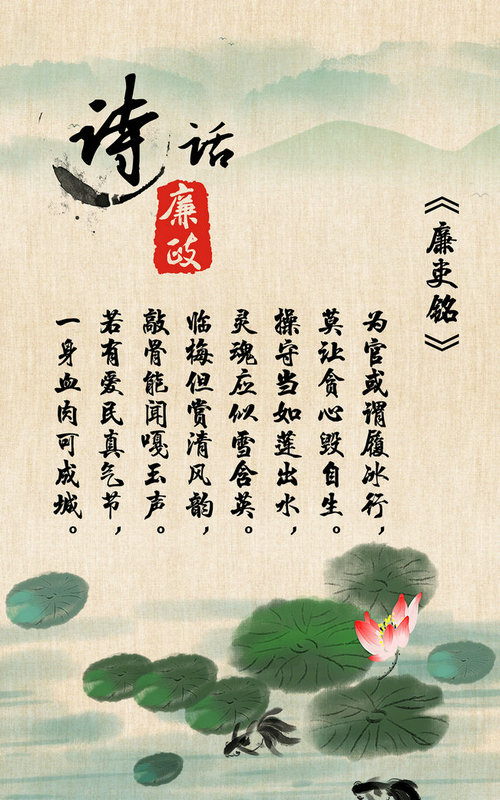 诗话
廉政
《廉吏铭》
为官或谓履冰行，
莫让贪心毁自生。
操守当如莲出水，
灵魂应似雪含英。
临梅但赏清风韵，
敲骨能闻嘎玉声。
若有爱民真气节，
一身血肉可成城。